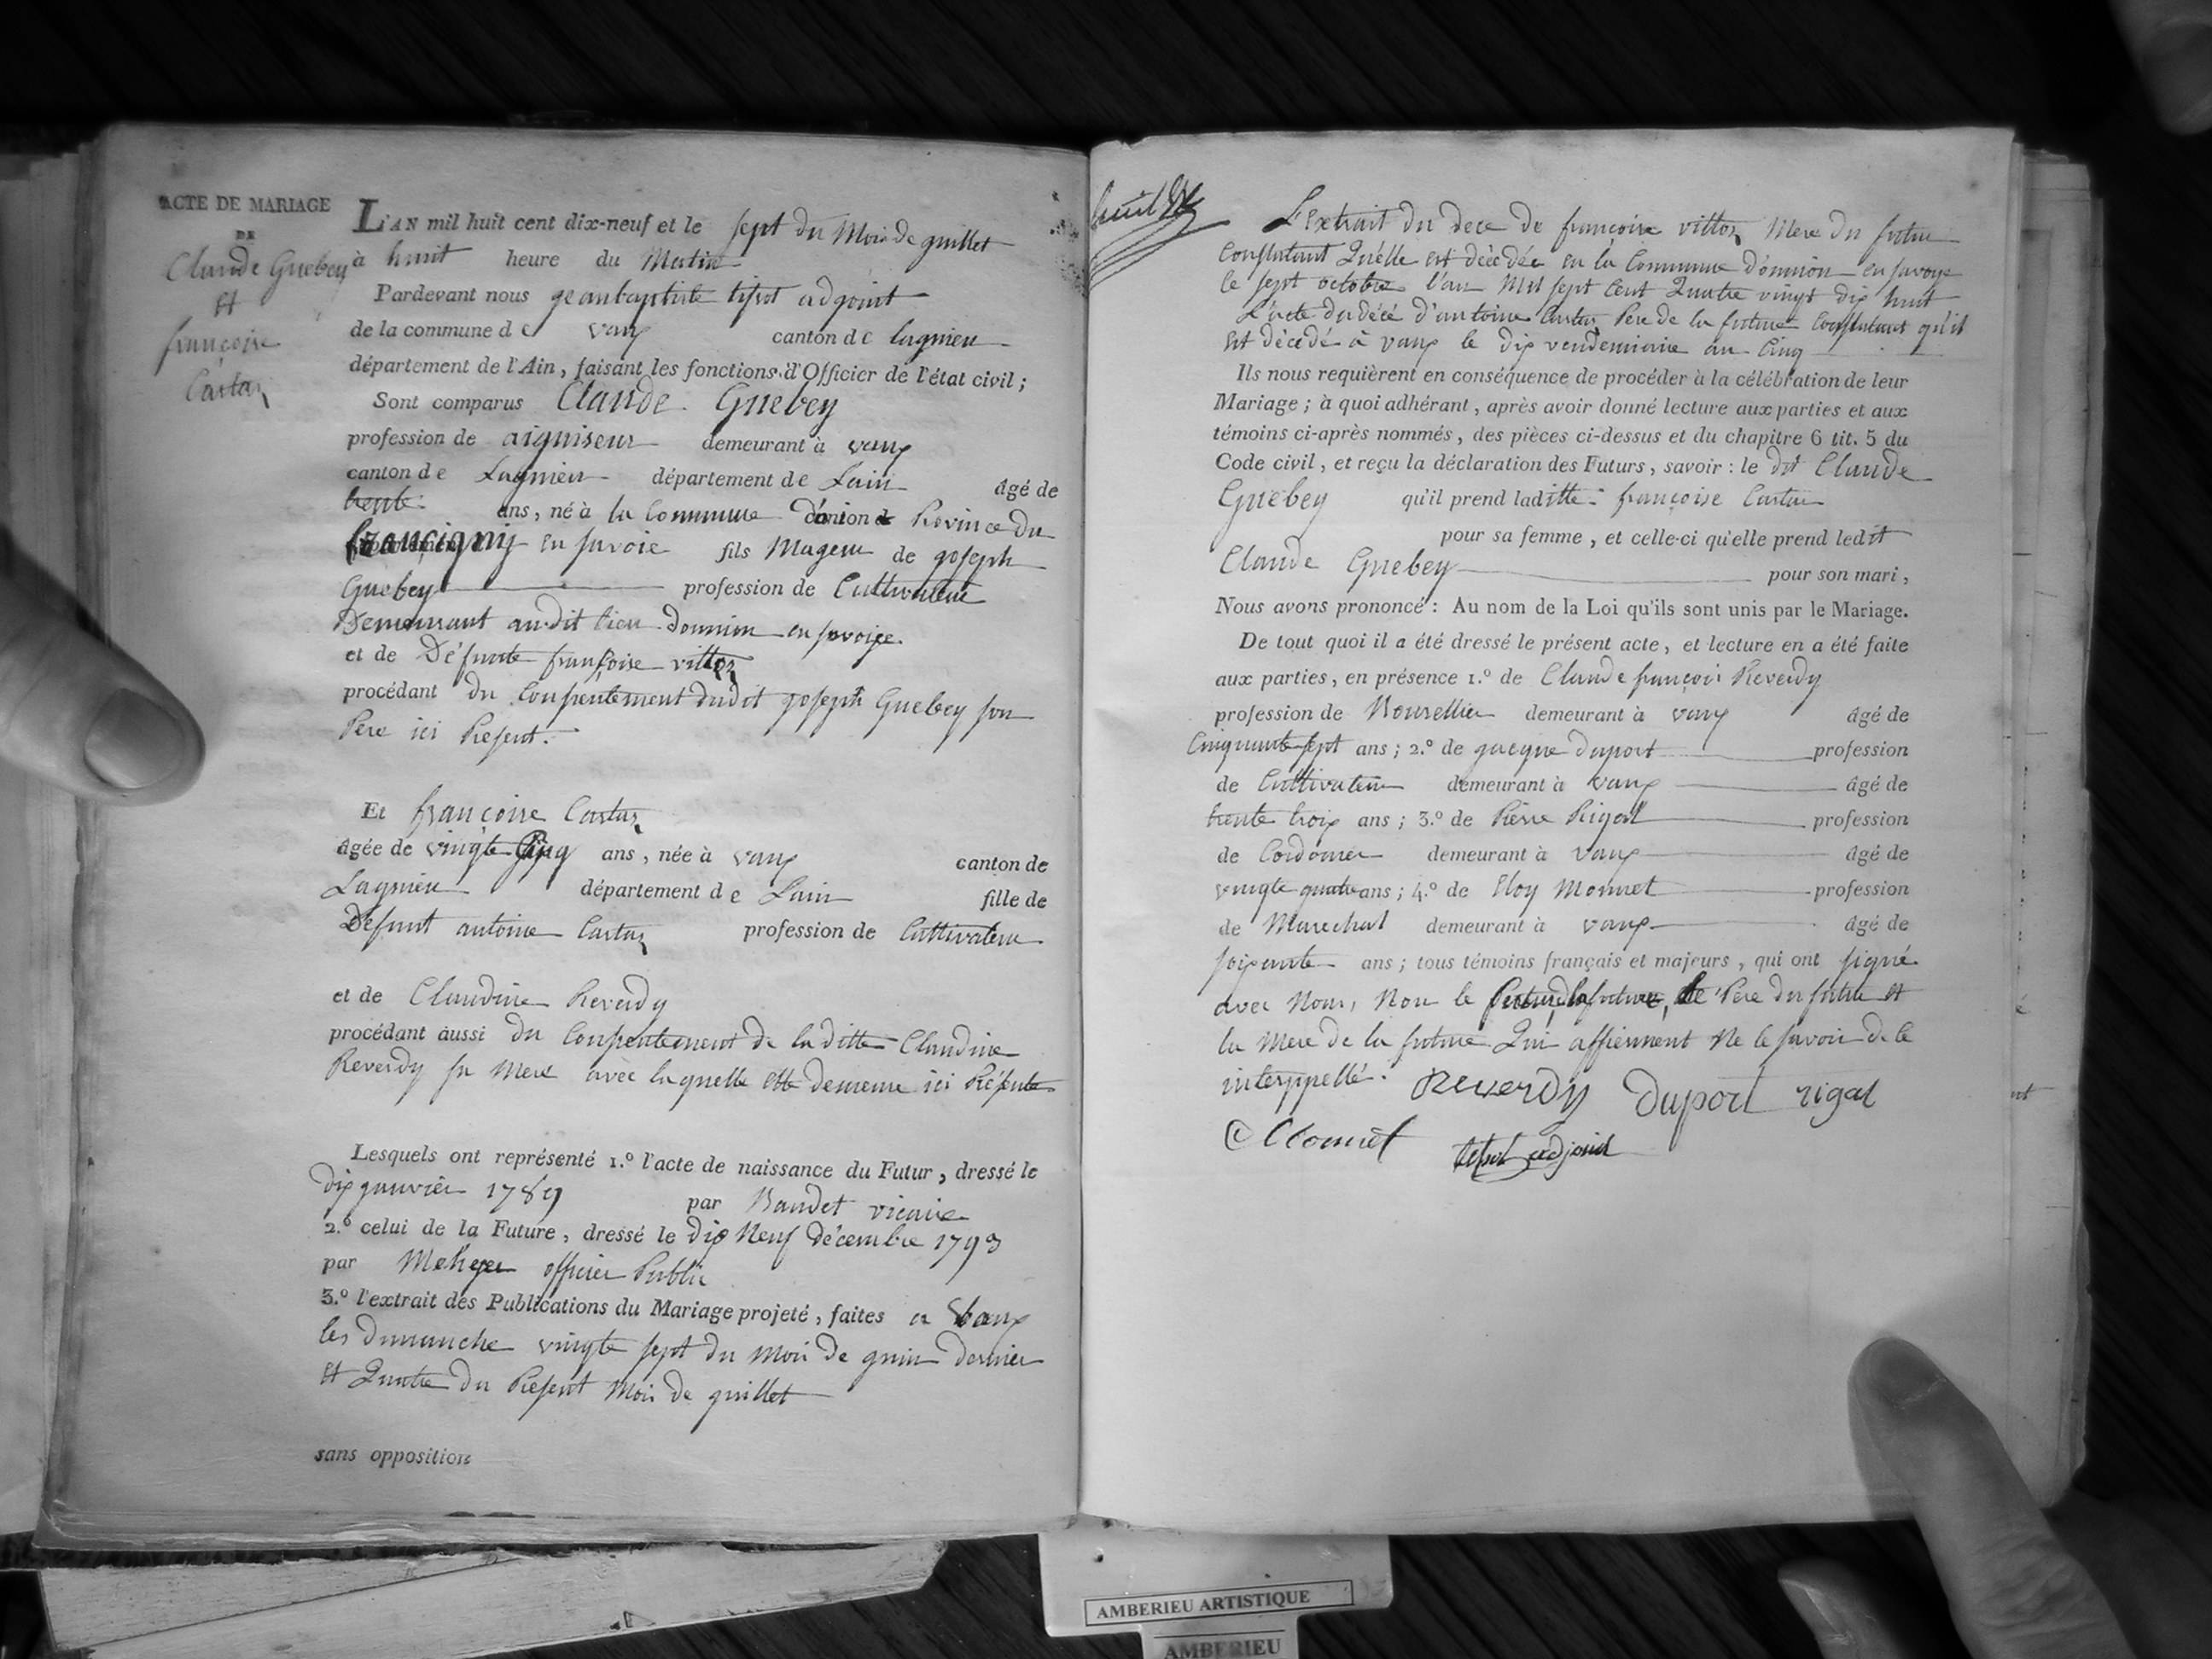 ACTE DE MARIAGE
DE
Claude Guebey
Et
françoise
Castaz
L'AN mil huit cent dix-neuf et le sept du Mois de guillet
à huit heure du Matin
Pardevant nous geanbaptiste tissot adgoint
de la commune de vaux canton de lagnieu
département de l'Ain, faisant les fonctions d'Officier de l'état civil ;
Sont comparus Claude Guebey
profession de aiguiseur demeurant à vaux
canton de Lagnieu département de Lain âgé de
trente ans, né à la Commune d'onion Province du
faucigny en savoie fils Mageur de goseph
Guebey profession de Cultivateur
Demeurant au dit lieu donnion en savoiye
et de Défunte françoise vittoz
procédant du Consentement dudit goseph Guebey son
Pere ici Présent.
Et françoise Castaz
âgée de vingte Cinq ans, née à vaux canton de
Lagnieu département de Lain fille de
Défunt antoine Castaz profession de Cultivateur
et de Claudine Reverdy
procédant aussi du Consentement de laditte Claudine
Reverdy sa Mere avec laquelle elle demeure ici Présente
Lesquels ont représenté 1.º l'acte de naissance du Futur, dressé le
dix ganvier 1789 par Baudet vicaire
2.º celui de la Future, dressé le dix Neuf décembre 1793
par officier Public
3.º l'extrait des Publications du Mariage projeté, faites a vaux
les dimanche vingte sept du Mois de guin dernier
Et Quatre du Présent Mois de guillet
sans opposition
L'Extrait du dece de françoise vittoz Mere du futur
Constatant Qu'elle est décédée en la Commune d'onnion en savoye
le sept octobre l'an Mil sept Cent Quatre vingt dix huit
L'acte du décé d'antoine Castaz Pere de la future Constatant qu'il
Est décédé à vaux le dix vendemiaire an Cinq
Ils nous requièrent en conséquence de procéder à la célébration de leur
Mariage ; à quoi adhérant, après avoir donné lecture aux parties et aux
témoins ci-après nommés, des pièces ci-dessus et du chapitre 6 tit. 5 du
Code civil, et reçu la déclaration des Futurs, savoir : le dit Claude
Guebey qu'il prend laditte françoise Castaz
pour sa femme, et celle-ci qu'elle prend ledit
Claude Guebey pour son mari,
Nous avons prononcé : Au nom de la Loi qu'ils sont unis par le Mariage.
De tout quoi il a été dressé le présent acte, et lecture en a été faite
aux parties, en présence 1.º de Claude françois Reverdy
profession de Bourellier demeurant à vaux âgé de
Cinquante sept ans ; 2.º de gacque duport profession
de Cultivateur demeurant à vaux âgé de
trente troix ans ; 3.º de Pierre Rigal profession
de Cordonier demeurant à vaux âgé de
vingte quatre ans ; 4.º de Eloy Monnet profession
de Marechal demeurant à vaux âgé de
soixante ans ; tous témoins français et majeurs, qui ont signé
avec Nous, Non le futur, la future, le Pere du futur Et
la Mere de la future Qui affierment Ne le savoir de le
interppellé.
Reverdy duport rigal
tissot adjoint
AMBERIEU ARTISTIQUE
AMBERIEU